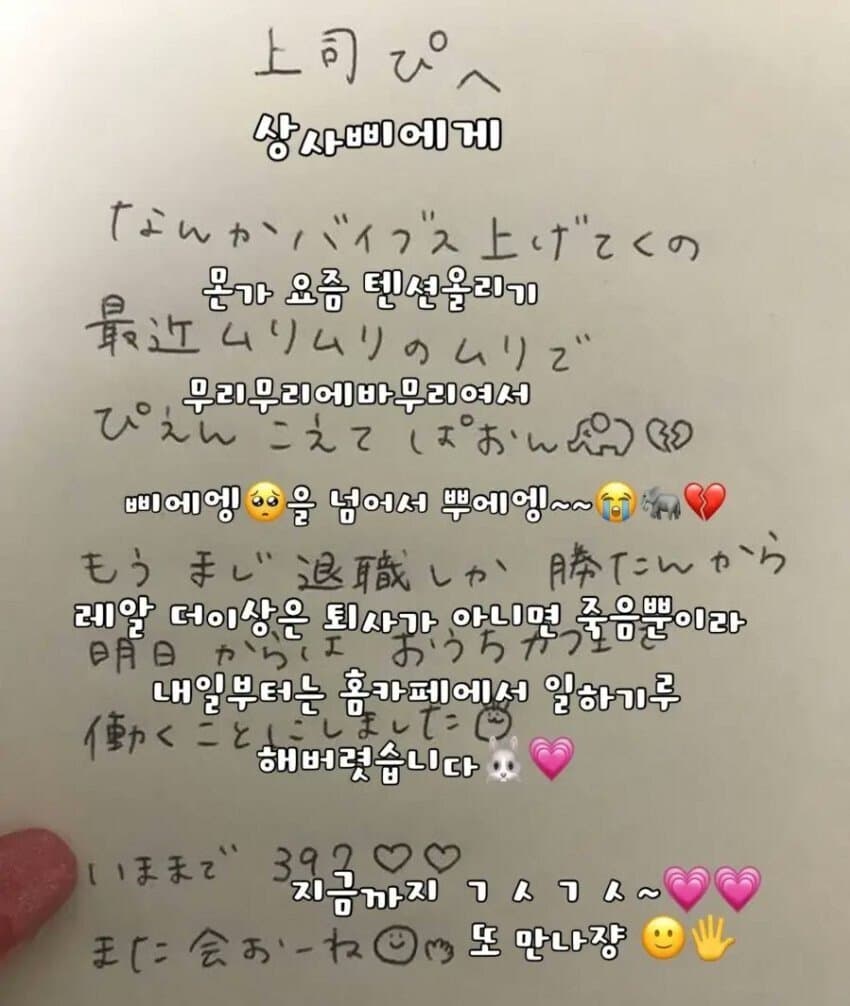 上司ぴへ
상사삐에게
なんかバイブス上げてくの
몬가 요즘 텐션올리기
最近ムリムリのムリで
무리무리에바무리여서
ぴえんこえてぱおん🐘💔
삐에엥🥺을 넘어서 뿌에엥~~😭🐘💔
もうまじ退職しか勝たんから
레알 더이상은 퇴사가 아니면 죽음뿐이라
明日からは おうちカフェで
내일부터는 홈카페에서 일하기루
働くことにしました
해버렸습니다🐰💗
いままで 397♡♡
지금까지 ㄱㅅㄱㅅ~💗💗
また会おーね☺👋
또 만나쟝 🙂🖐